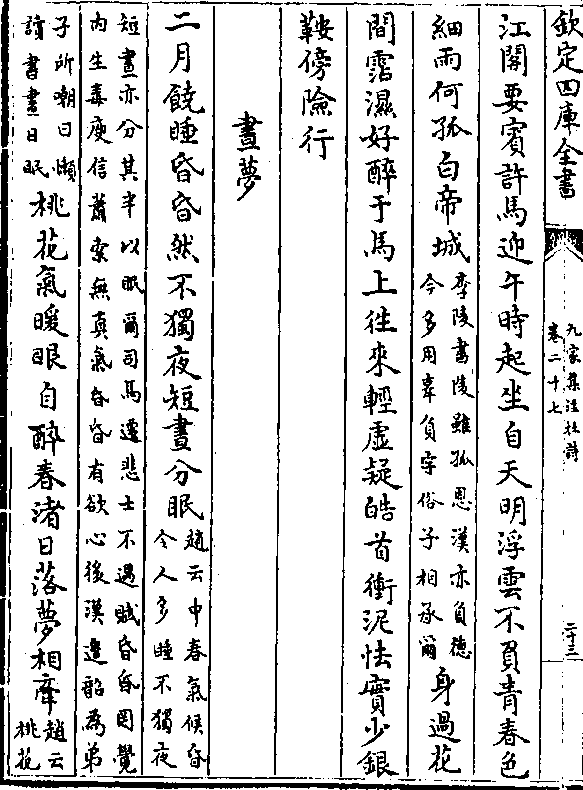 欽定四庫全書
九家集注杜詩
卷二十七
二十三
江閣要賓許馬迎午時起坐自天明浮雲不負青春色
細雨何孤白帝城
李陵書陵雖孤恩漢亦負德
今多用辜負字俗子相承爾
身過花
間霑濕好醉于馬上往來輕虛疑皓首衝泥怯實少銀
鞍傍險行
晝夢
二月饒睡昏昏然不獨夜短晝分眠
趙云中春氣候昏
令人多睡不獨夜
短晝亦分其半以眠爾司馬遷悲士不遇賦昏昏罔覺
内生毒庾信蕭索無真氣昏昏有欲心後漢邉韶為弟
子所嘲曰懶
讀書晝日眠
桃花氣暖眼自醉春渚日落夢相牽
趙云
桃花